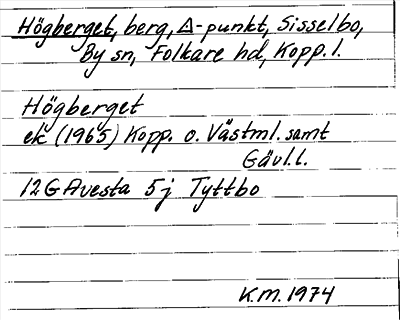 Högberget, berg, Δ-punkt, Sisselbo,
By sn, Folkare hd, Kopp. l.
Högberget
ek (1965) Kopp. o. Västml. samt
Gävl. l.
12G Avesta 5j Tyttbo
K.M. 1974